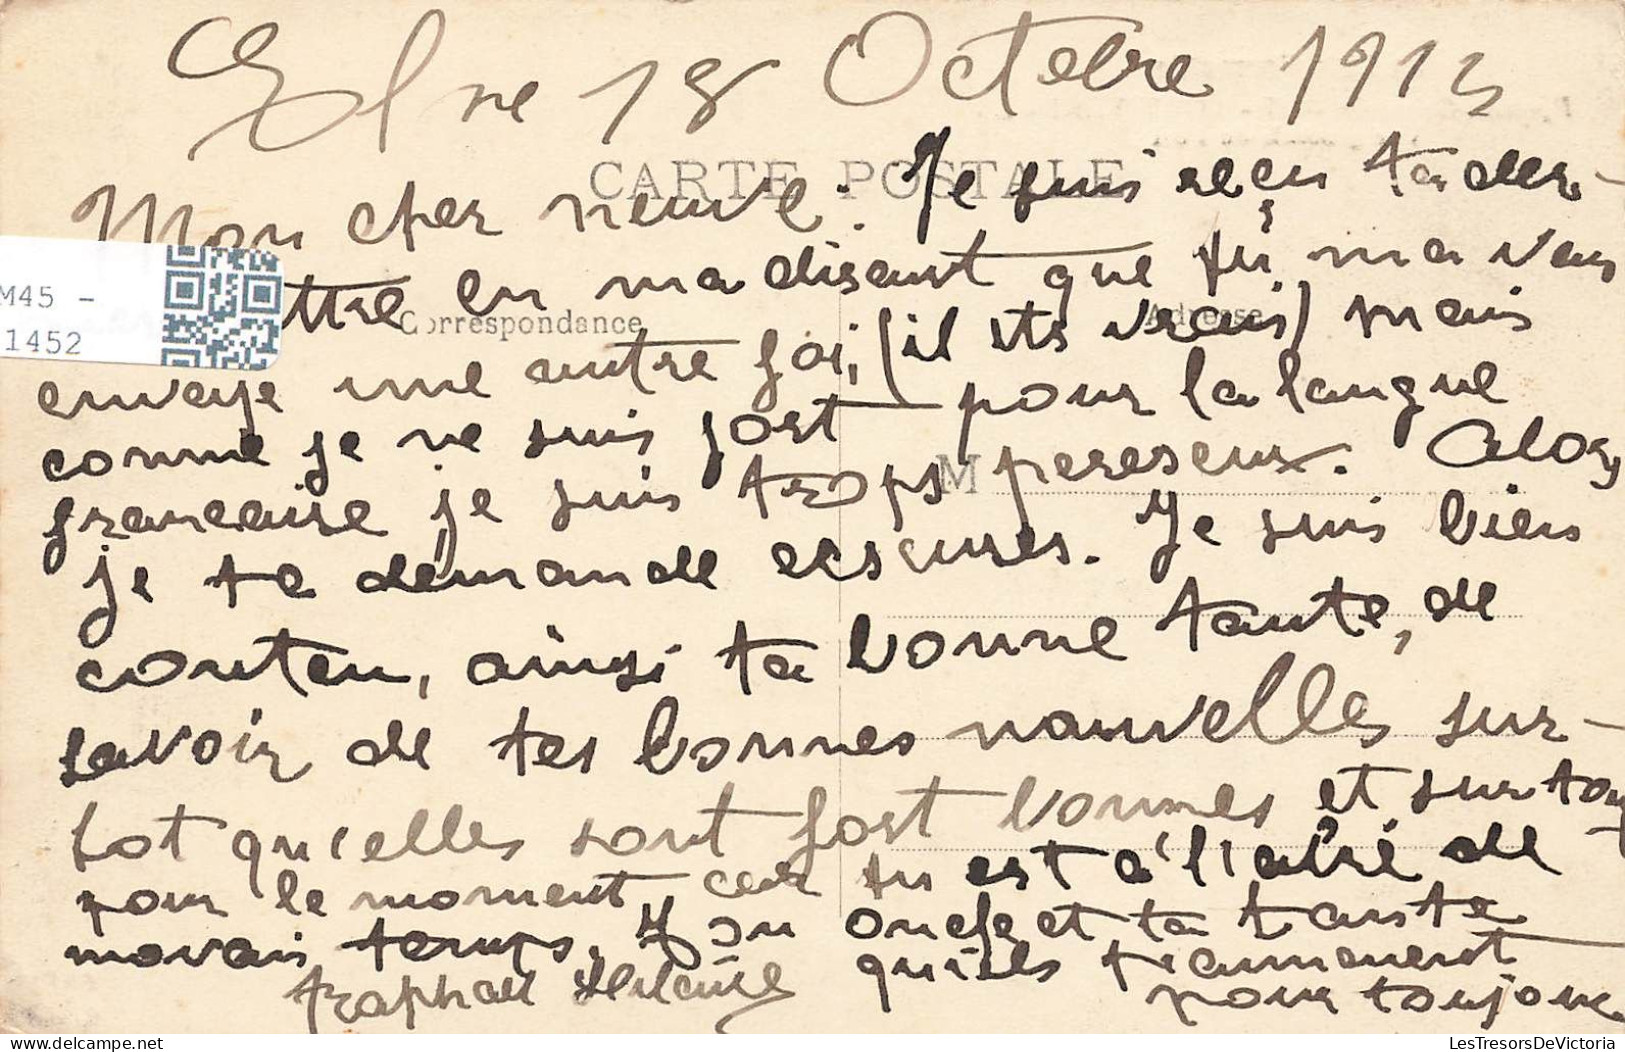 Elne 18 Octobre 1915
CARTE POSTALE
Mon cher neuve. Je suis reçu ta der-
ttre en ma disant que tu ma vais
M45 -
1452
Correspondance
Adresse
envoye une autre foi, (il ets vrais) mais
comme je ne suis fort pour la langue
francaise je suis trops pereseux. Alors
M
je te demande escuses. Je suis bien
conten, ainsi ta bonne tante, de
savoir de tes bonnes nouvelles sur-
tot qu'elles sont fort bonnes et surtout
pour le moment, car tu est a l'abri de
movais temps. Ton oncle et ta tante
qu'ils t'aimeront
pour toujour
LesTresorsDeVictoria